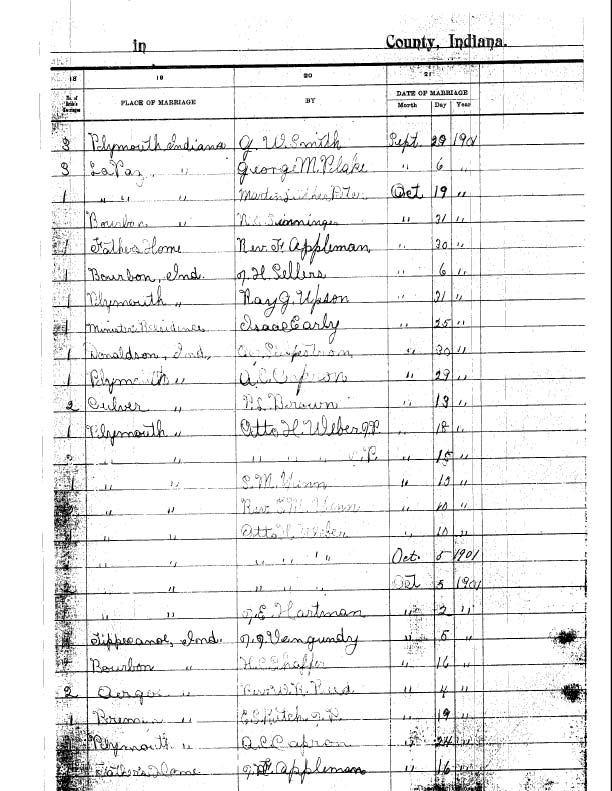 in County, Indiana.
18 19 20 21
No. of Bride's Marriages PLACE OF MARRIAGE BY DATE OF MARRIAGE
Month Day Year
3 Plymouth, Indiana G. W. Smith Sept 29 1901
3 LaPaz, " George M. Plake " 6 "
1 " " " Martin Luther Oct 19 "
Bourbon " " 31 "
1 Father's Home Rev. F. Appleman " 30 "
1 Bourbon, Ind. J. H. Sellers " 6 "
1 Plymouth " Ray G. Upson " 31 "
1 Minister's Residence Isaac Early " 25 "
1 Donaldson, Ind. " 30 "
1 Plymouth " A. C. Capron " 29 "
2 Culver " Brown " 13 "
1 Plymouth " Otto H. Weber J.P. " 18 "
" " " " " J.P. " 15 "
1 " " S. M. " 12 "
" " Rev. S. M. " 10 "
" " Otto H. Weber " 10 "
" " " " " Oct. 5 1901
2 " " " " Oct 5 1901
" " J. E. Hartman " 2 "
Tippecanoe, Ind. J. J. Vangundy " 5 "
Bourbon " H. C. Shaffer " 16 "
2 " Rev. W. R. " 4 "
1 Bremen " E. C. Kitch J.P. " 19 "
Plymouth " A. C. Capron " 24 "
Father's Home Appleman " 16 "